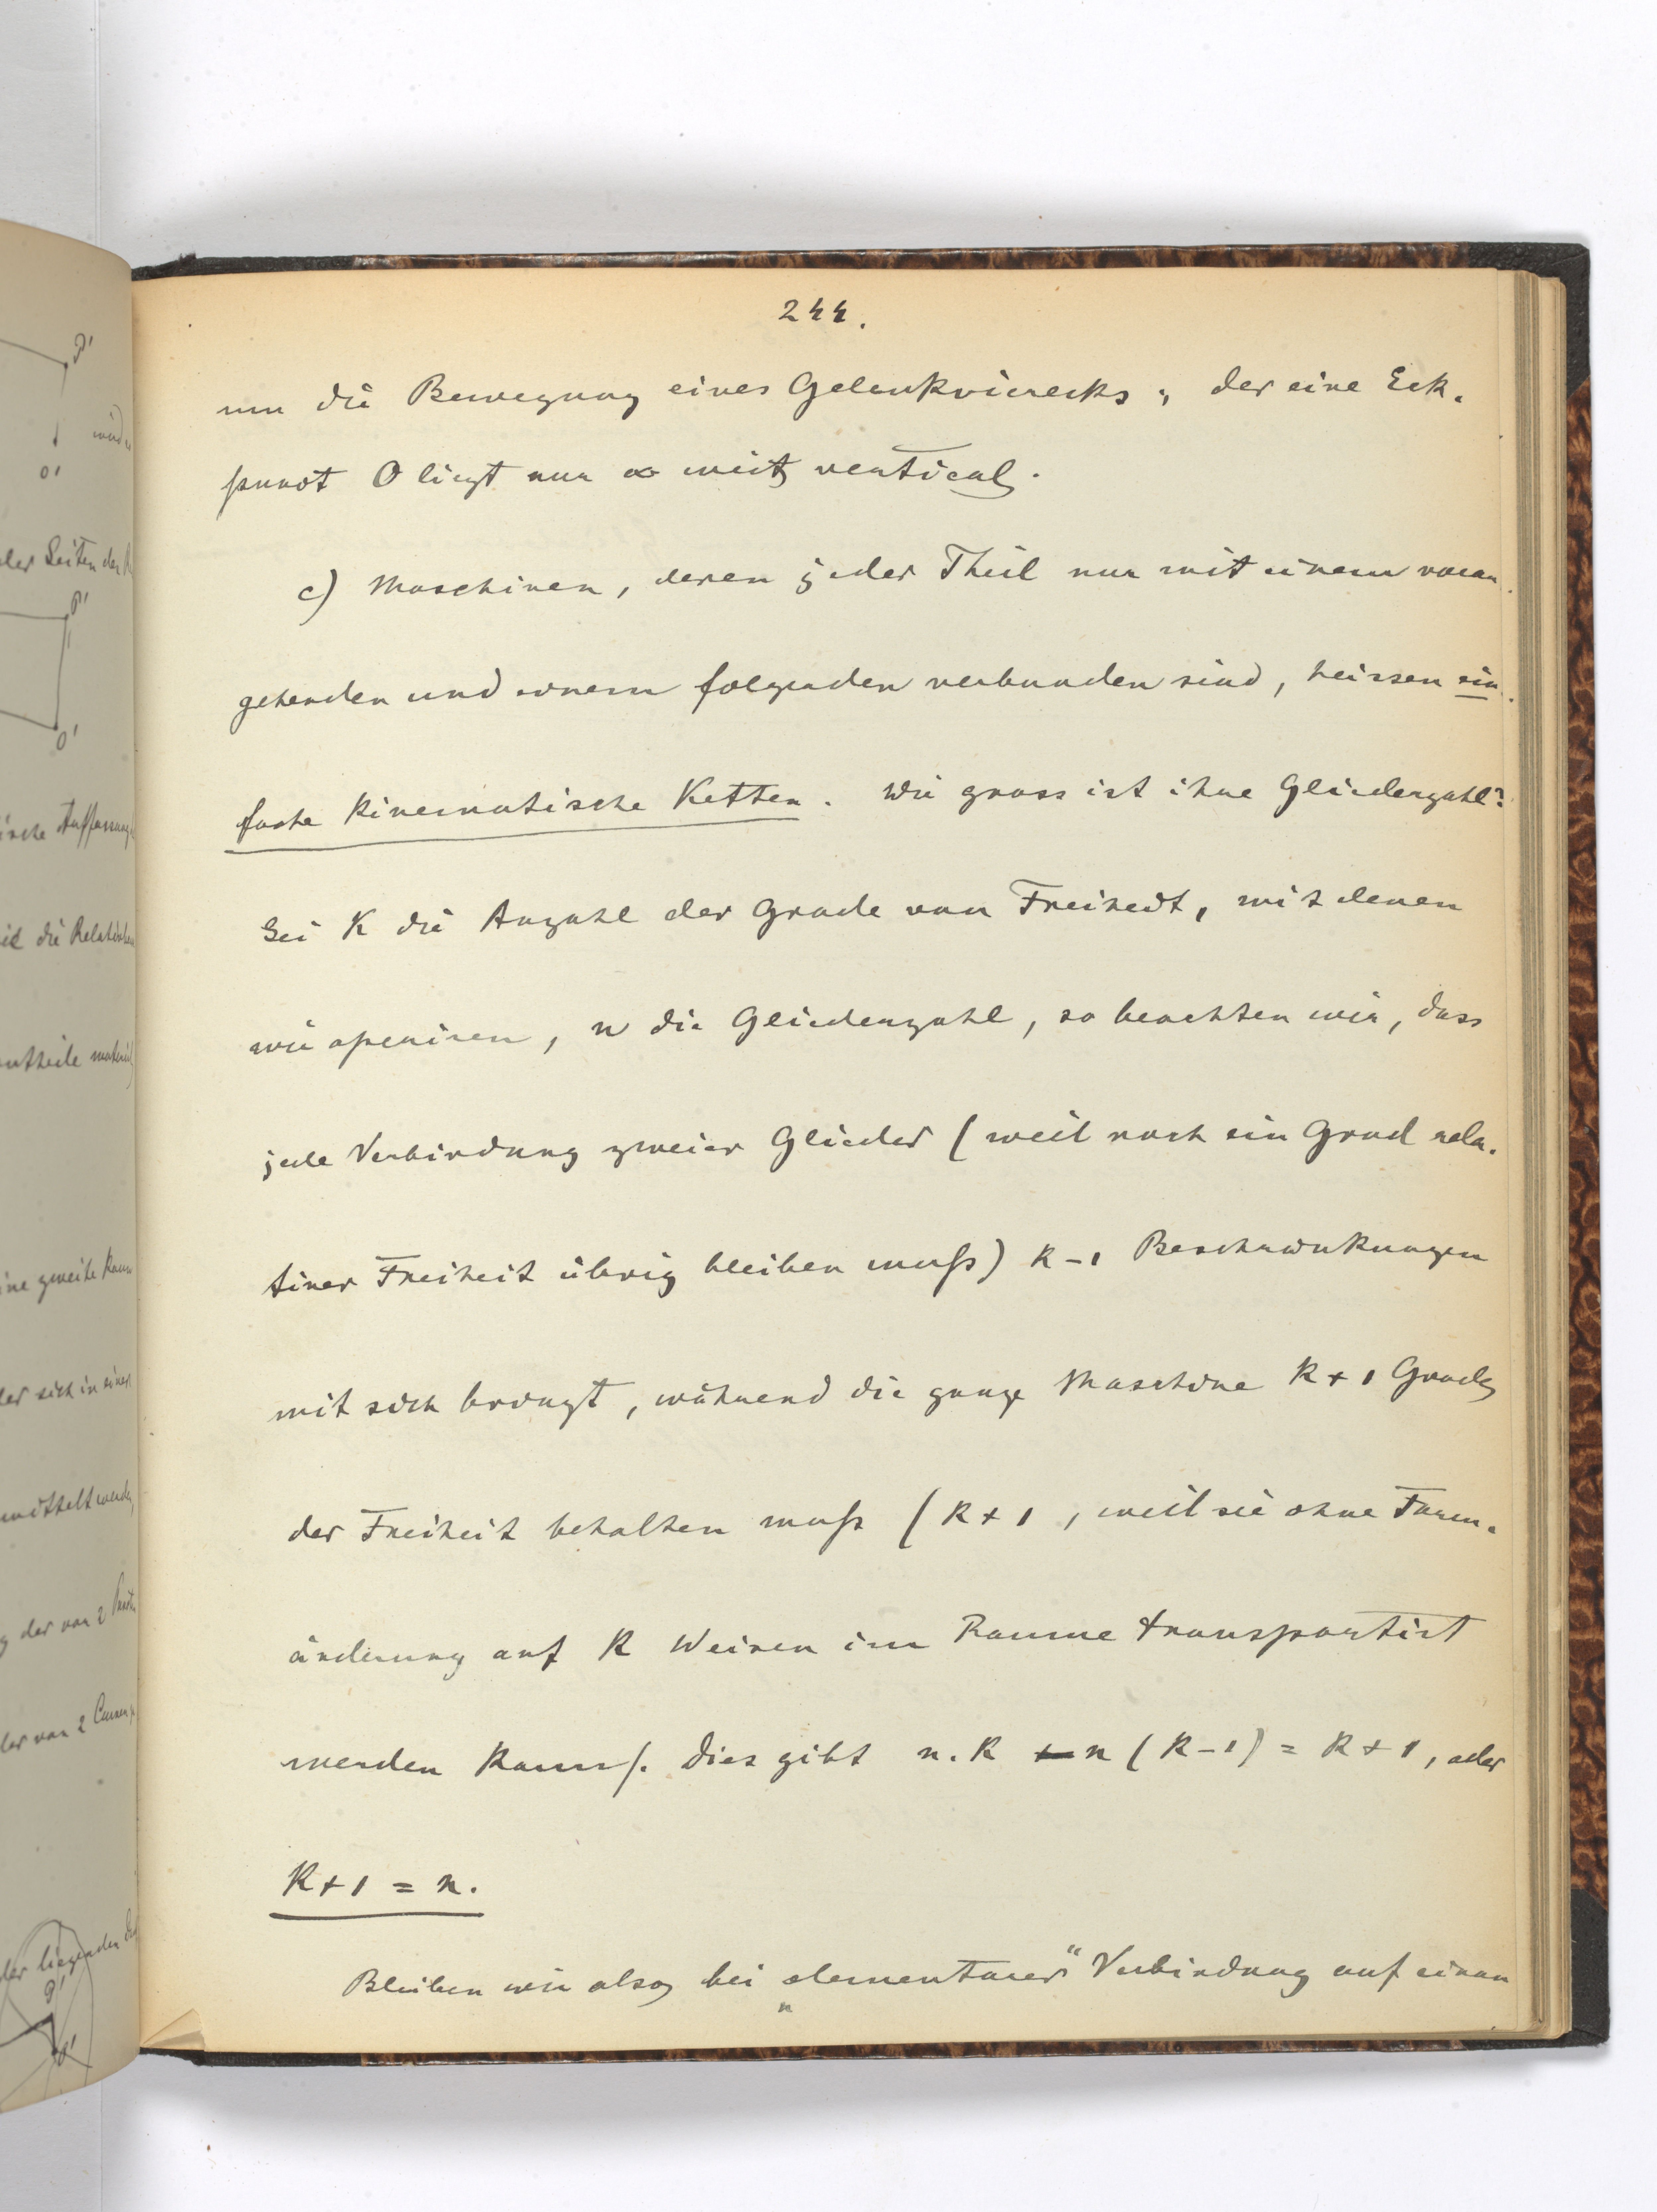 244.
um die Bewegung eines Gelenkvierecks; der eine Eck-
punct O liegt nur ∞ weit vertical.
c) Maschinen, deren jeder Theil nur mit einem voran-
gehenden und einem folgenden verbunden sind, heissen ein-
fache kinematische Ketten. Wie gross ist ihre Gliederzahl?
Sei K die Anzahl der Grade von Freiheit, mit denen
wir operiren, n die Gliederzahl, so beachten wir, dass
jede Verbindung zweier Glieder (weil noch ein Grad rela-
tiver Freiheit übrig bleiben muß) K-1 Beschränkungen
mit sich bringt, während die ganze Maschine K+1 Grade
der Freiheit behalten muß (K+1, weil sie ohne Form-
änderung auf K Weisen im Raume transportirt
werden kann). Dies gibt n.K - n (K-1) = K+1, oder
K+1 = n.
Bleiben wir also bei „elementarer“ Verbindung auf einan
der Seiten der
P'
O'
ische Auffassung
die Relativ
ntheile
ine zweite Raum
der sich in einer
mittelt
der von 2
der von 2 Curven
der liegenden